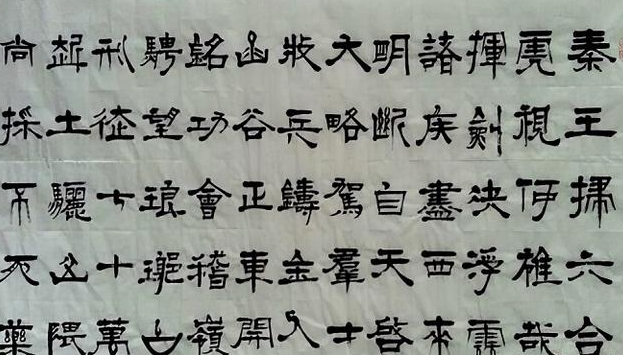 秦王掃六合
虎視何雄哉
揮劍決浮雲
諸侯盡西來
明斷自天啓
大略駕羣才
收兵鑄金人
函谷正東開
銘功會稽嶺
騁望琅琊
刑徒七十萬
起土驪山隈
尚採不死藥